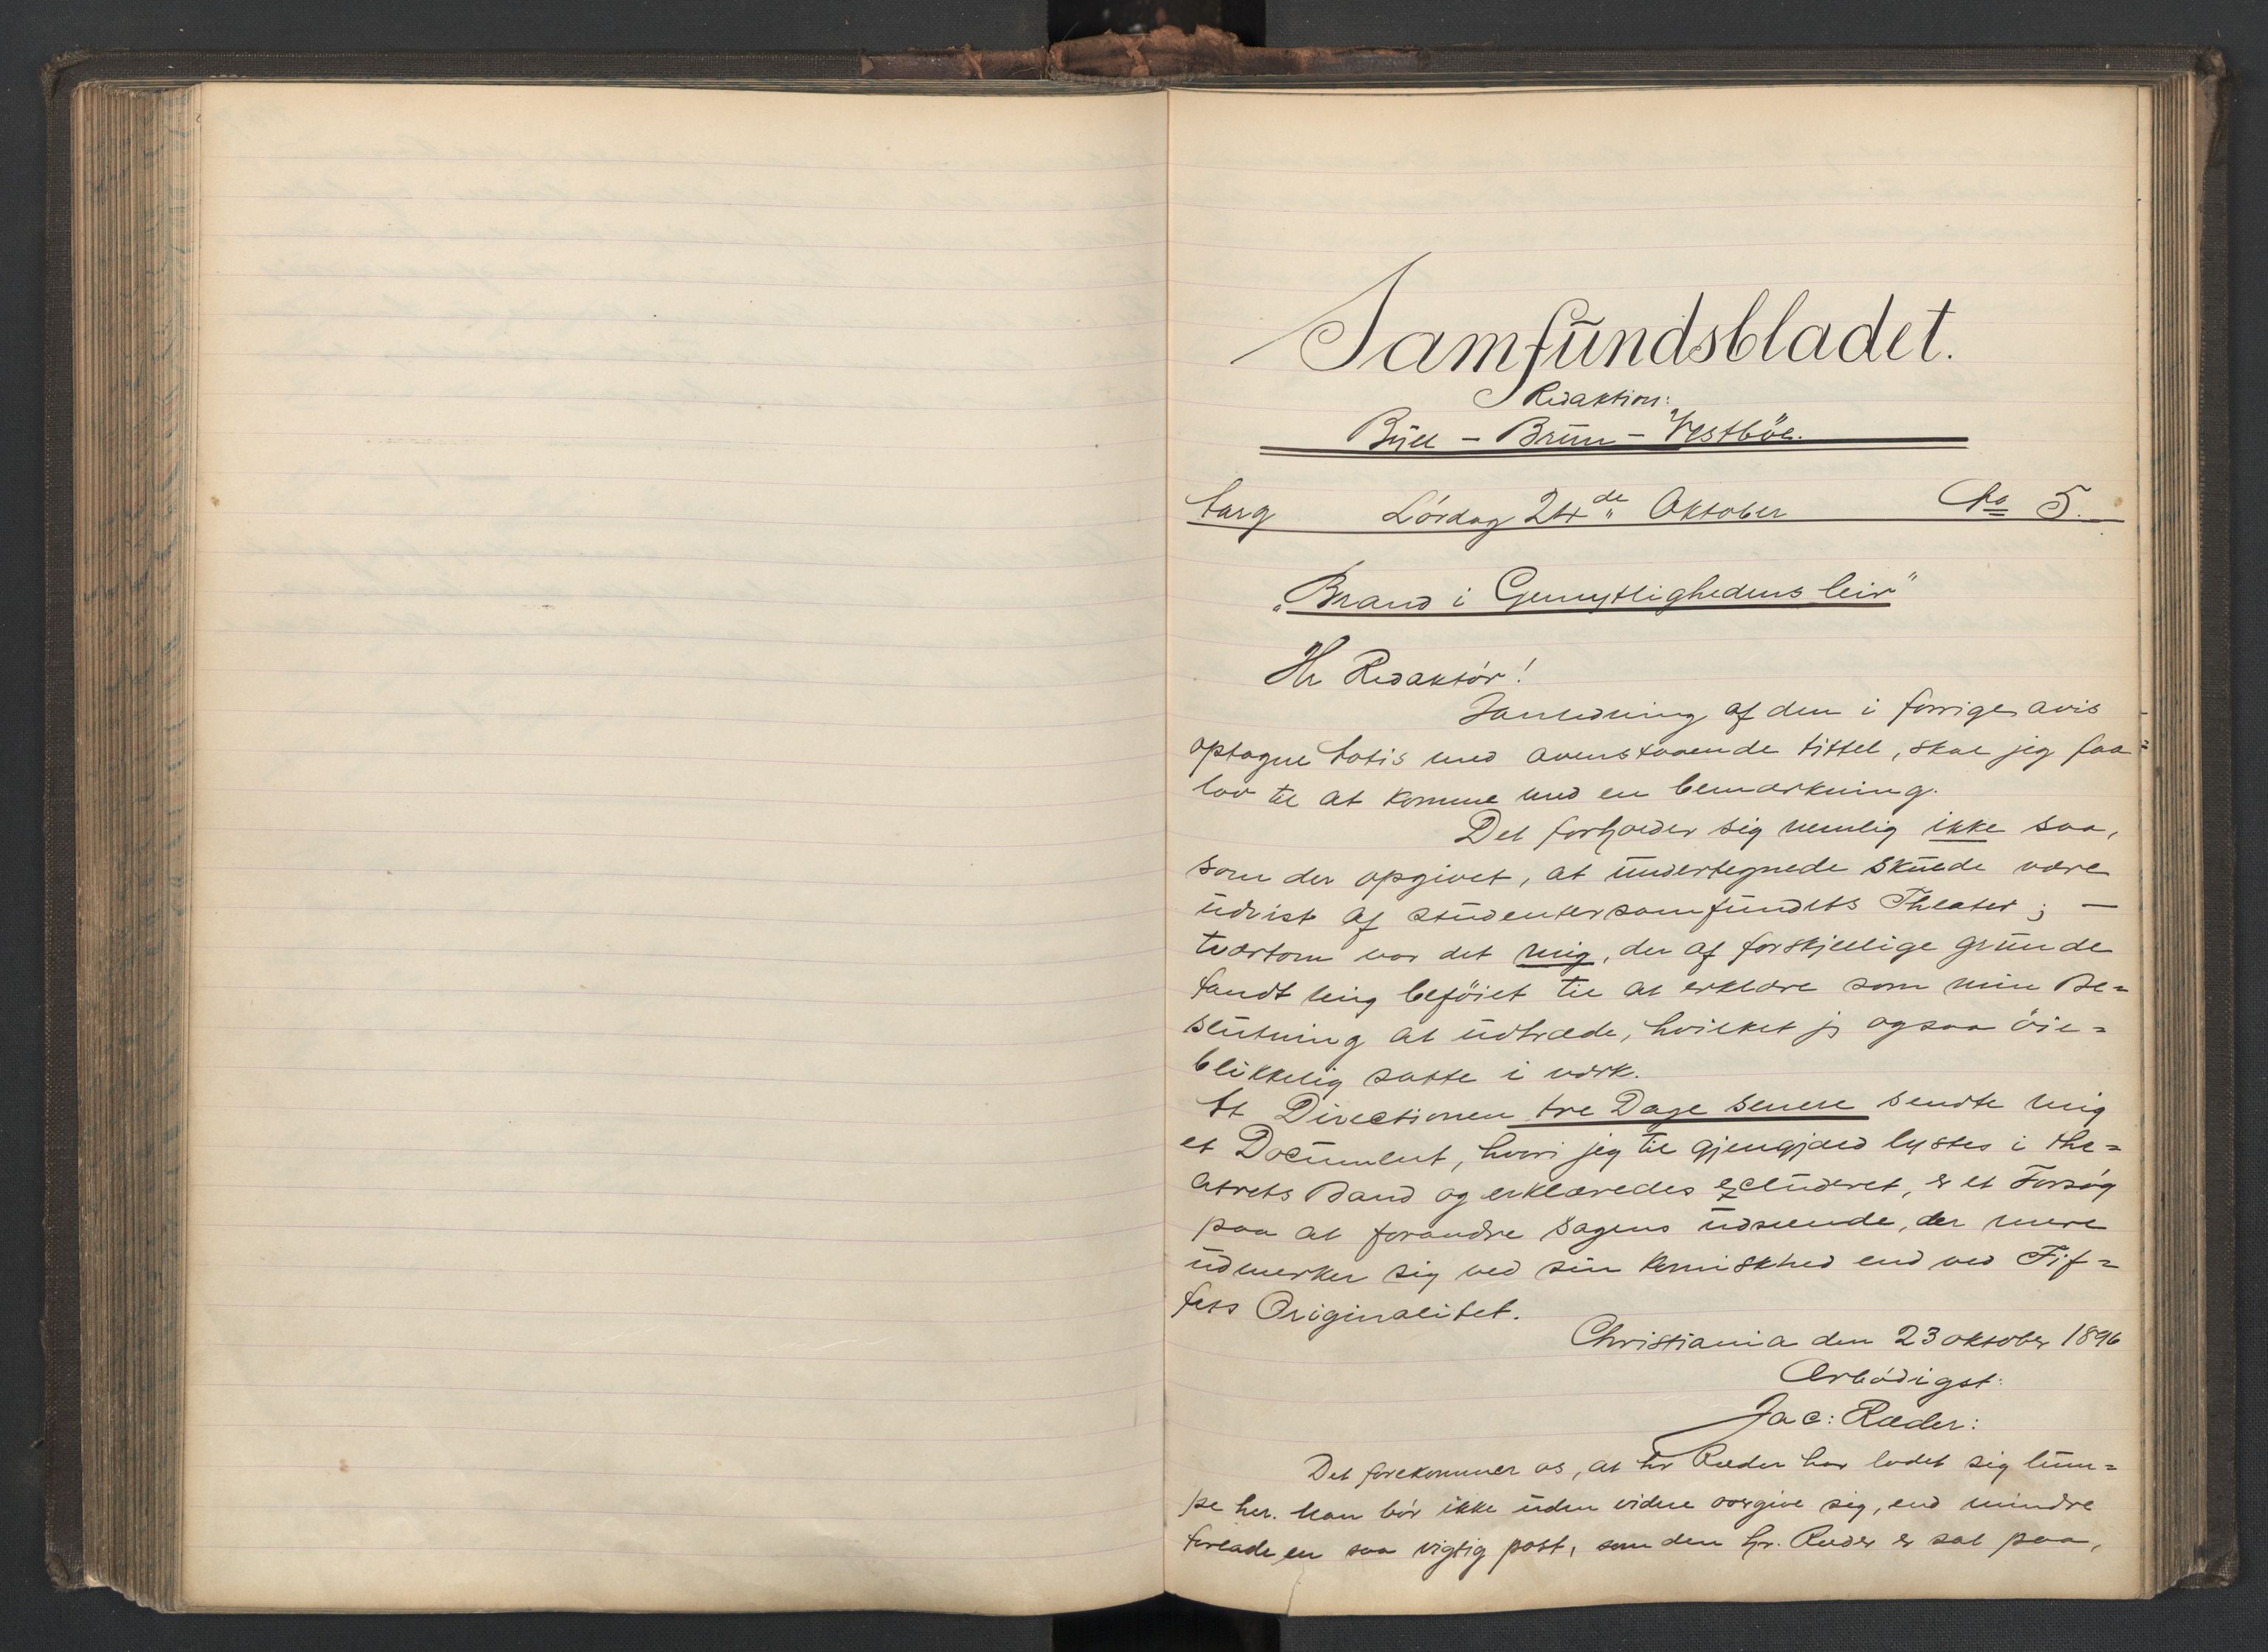 Samfundsbladet.
Redaktion:
Bull – Brun – Vestbøe.
Aarg Lørdag 24de Oktober No 5.
„Brand i Gemytlighedens leir"
Hr Redaktør!
I anledning af den i forrige avis
optagne Notis med ovenstaaende tittel, skal jeg faa
lov til at komme med en bemærkning.
Det forholder sig nemlig ikke saa,
som der opgivet, at undertegnede skulde være
udvist af studentersamfundets Theater; —
tværtom var det mig, der af forskjellige grunde
fandt mig beføiet til at erklære som min Be=
slutning at udtræde, hvilket jeg ogsaa öie=
blikkelig satte i værk.
At Directionen tre Dage senere sendte mig
et Document, hvori jeg til gjengjæld lystes i the=
atrets Band og erklæredes excluderet, er et Forsøg
paa at forandre sagens udseende, der mere
udmerker sig ved sin komiskhed end ved Fif=
fets Originalitet.
Christiania den 23 oktober 1896
Ærbödigst:
Jac: Ræder:
Det forekommer os, at hr Ræder har ladet sig lum=
pe her. Man bör ikke uden videre overgive sig, end mindre
forlade en saa vigtig post, som den hr. Ræder er sat paa,